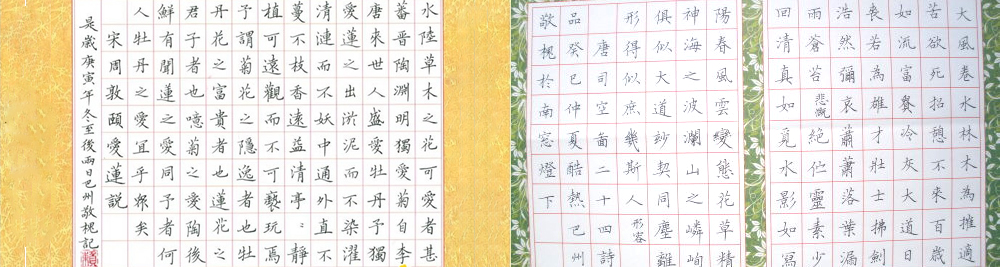 水陸草木之花可愛者甚
蕃晉陶淵明獨愛菊自李
唐來世人盛愛牡丹予獨
愛蓮之出淤泥而不染濯
清漣而不妖中通外直不
蔓不枝香遠益清亭：靜
植可遠觀而不可褻玩焉
予謂菊花之隱逸者也牡
丹花之富貴者也蓮花之
君子者也噫菊之愛陶後
鮮有聞蓮之愛同予者何
人牡丹之愛宜乎眾矣
宋周敦頤愛蓮說
是歲庚寅年冬至後兩日巴州敬槐記
大風卷水林木為摧適
苦欲死招憩不來百歲
如流富貴冷灰大道日
喪若為雄才壯士拂劍
浩然彌哀蕭蕭落葉漏
雨蒼苔悲慨絕佇靈素少
回清真如覓水影如寫
陽春風雲變態花草精
神海之波瀾山之嶙峋
俱似大道妙契同塵離
形得似庶幾斯人形容
唐司空圖二十四詩
品癸巳仲夏酷熱巴州
敬槐於南窓燈下